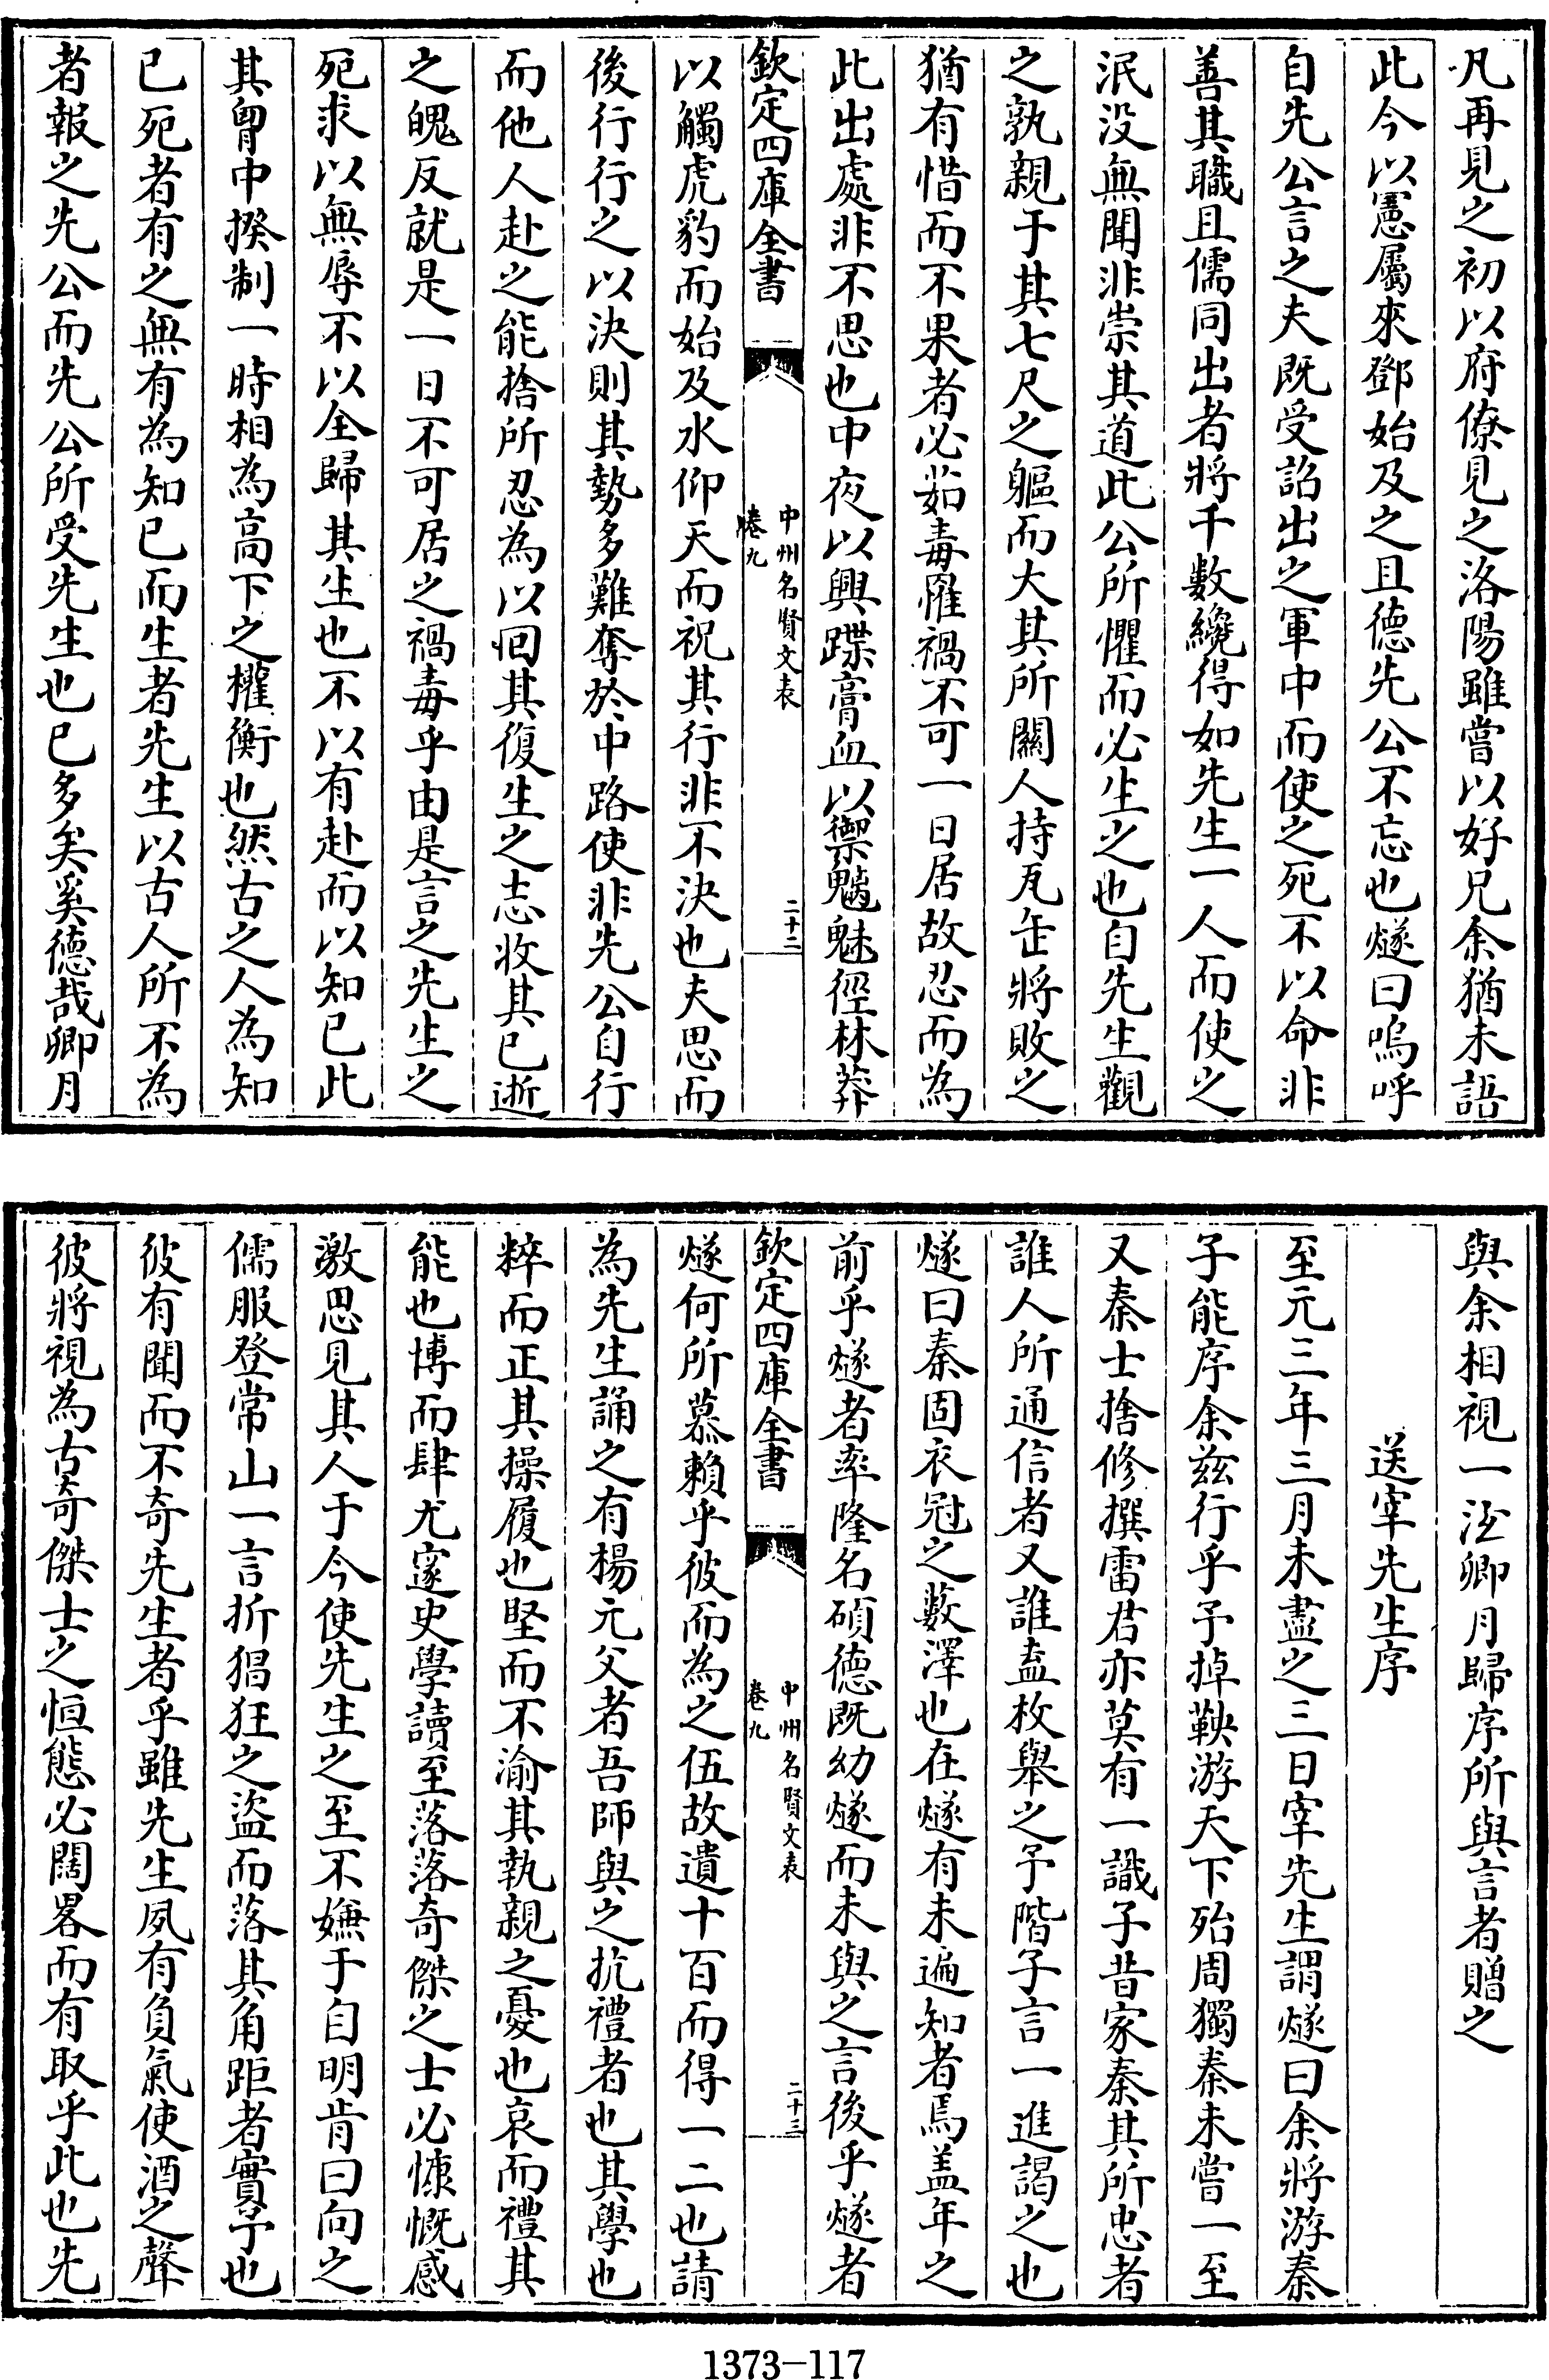 凡再見之初以府僚見之洛陽雖嘗以好兄余猶未語
此今以憲屬來鄧始及之且德先公不忘也燧曰嗚呼
自先公言之夫既受詔出之軍中而使之死不以命非
善其職且儒同出者將千數纔得如先生一人而使之
泯没無聞非崇其道此公所懼而必生之也自先生觀
之孰親于其七尺之軀而大其所關人持瓦缶將敗之
猶有惜而不果者必茹毒罹禍不可一日居故忍而為
此出處非不思也中夜以興蹀膏血以禦魑魅徑林莽
欽定四庫全書
中州名賢文表
卷九
二十二
以觸虎豹而始及水仰天而祝其行非不決也夫思而
後行行之以決則其勢多難奪於中路使非先公自行
而他人赴之能捨所忍為以回其復生之志收其已逝
之魄反就是一日不可居之禍毒乎由是言之先生之
死求以無辱不以全歸其生也不以有赴而以知已此
其胷中揆制一時相為高下之權衡也然古之人為知
已死者有之無有為知已而生者先生以古人所不為
者報之先公而先公所受先生也已多矣奚德哉卿月
與余相視一泣卿月歸序所與言者贈之
送宰先生序
至元三年三月未盡之三日宰先生謂燧曰余將游秦
子能序余兹行乎予掉鞅游天下殆周獨秦未嘗一至
又秦士捨修撰雷君亦莫有一識子昔家秦其所忠者
誰人所通信者又誰盍枚舉之予階子言一進謁之也
燧曰秦固衣冠之藪澤也在燧有未遍知者焉盖年之
前乎燧者率隆名碩德既幼燧而未與之言後乎燧者
欽定四庫全書
中州名賢文表
卷九
二十三
燧何所慕賴乎彼而為之伍故遺十百而得一二也請
為先生誦之有楊元父者吾師與之抗禮者也其學也
粹而正其操履也堅而不渝其執親之憂也哀而禮其
能也博而肆尤邃史學讀至落落奇傑之士必慷慨感
激思見其人于今使先生之至不嫌于自明肯曰向之
儒服登常山一言折猖狂之盜而落其角距者實予也
彼有聞而不奇先生者乎雖先生夙有負氣使酒之聲
彼將視為古奇傑士之恒態必闊畧而有取乎此也先
1373-117